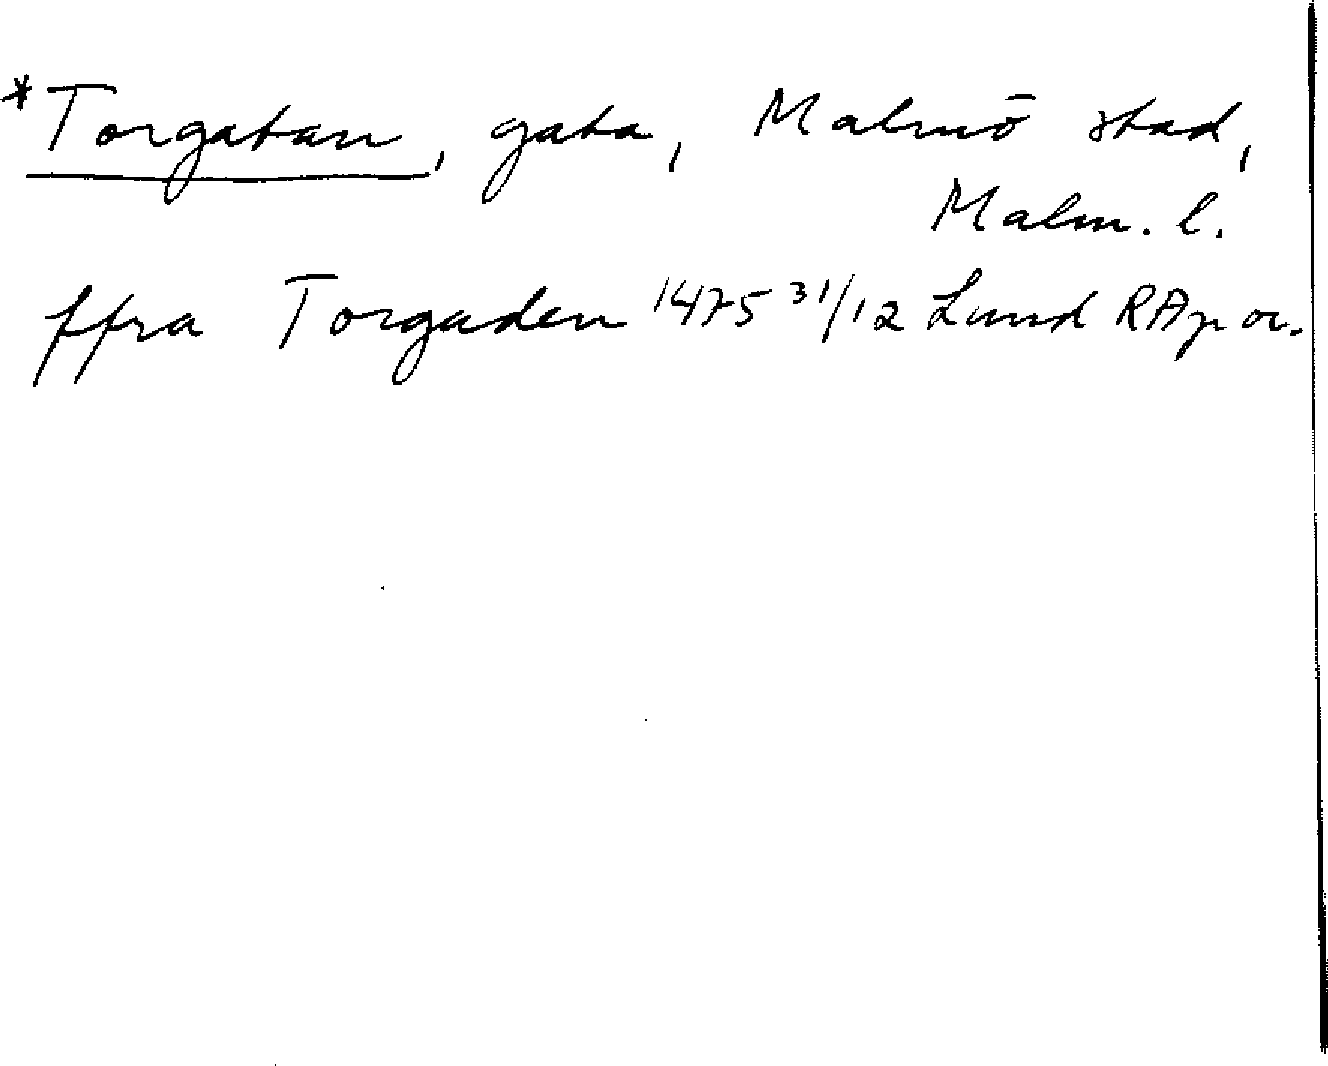 *Torgatan, gata, Malmö stad,
Malm. l.
ffra Torgaden 1475 31/12 Lund RAp or.